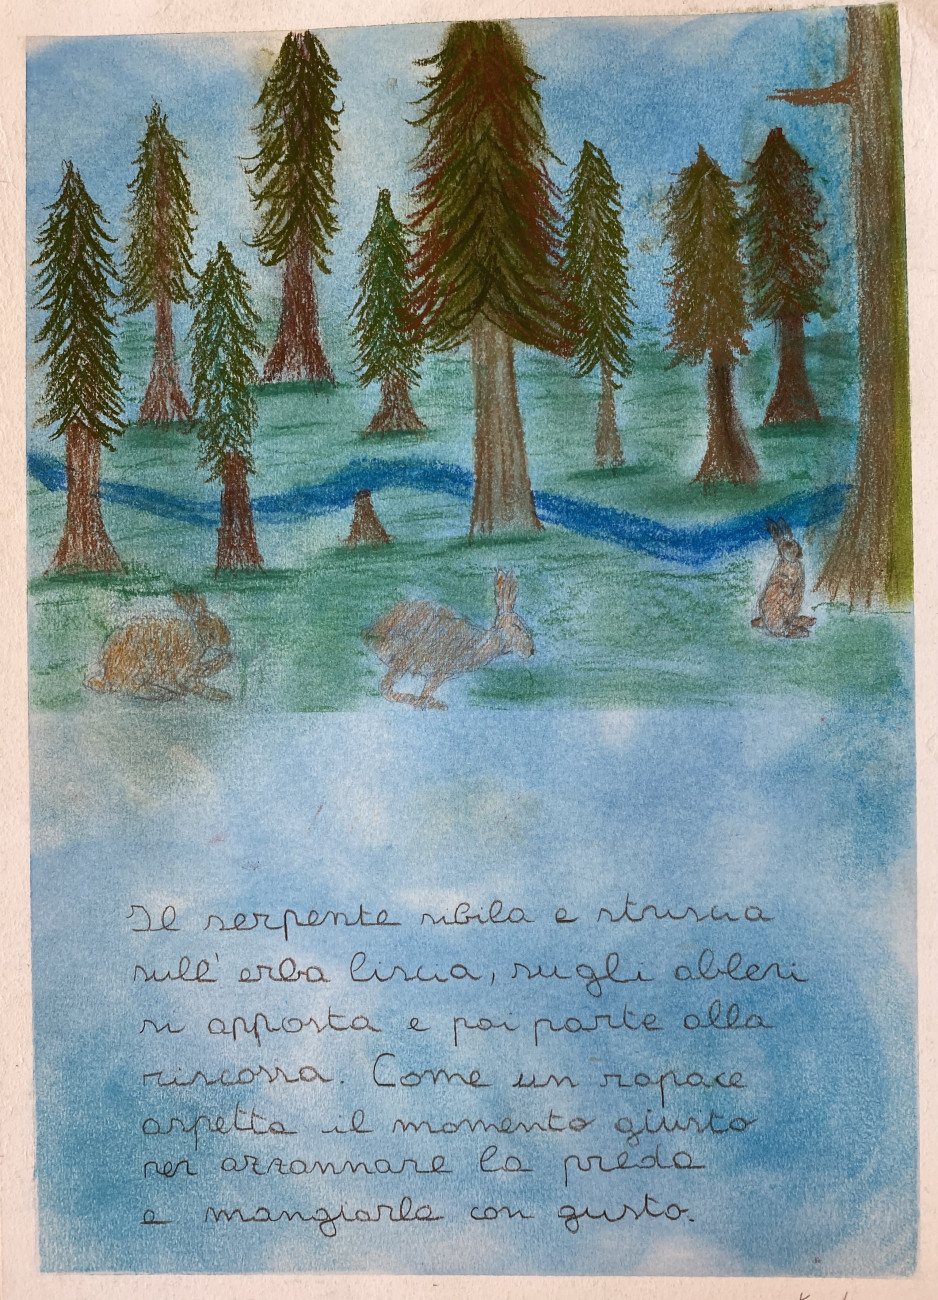 Il serpente sibila e struscia
sull' erba liscia, sugli alberi
si apposta e poi parte alla
riscossa. Come un rapace
aspetta il momento giusto
per azzannare la preda
e mangiarla con gusto.